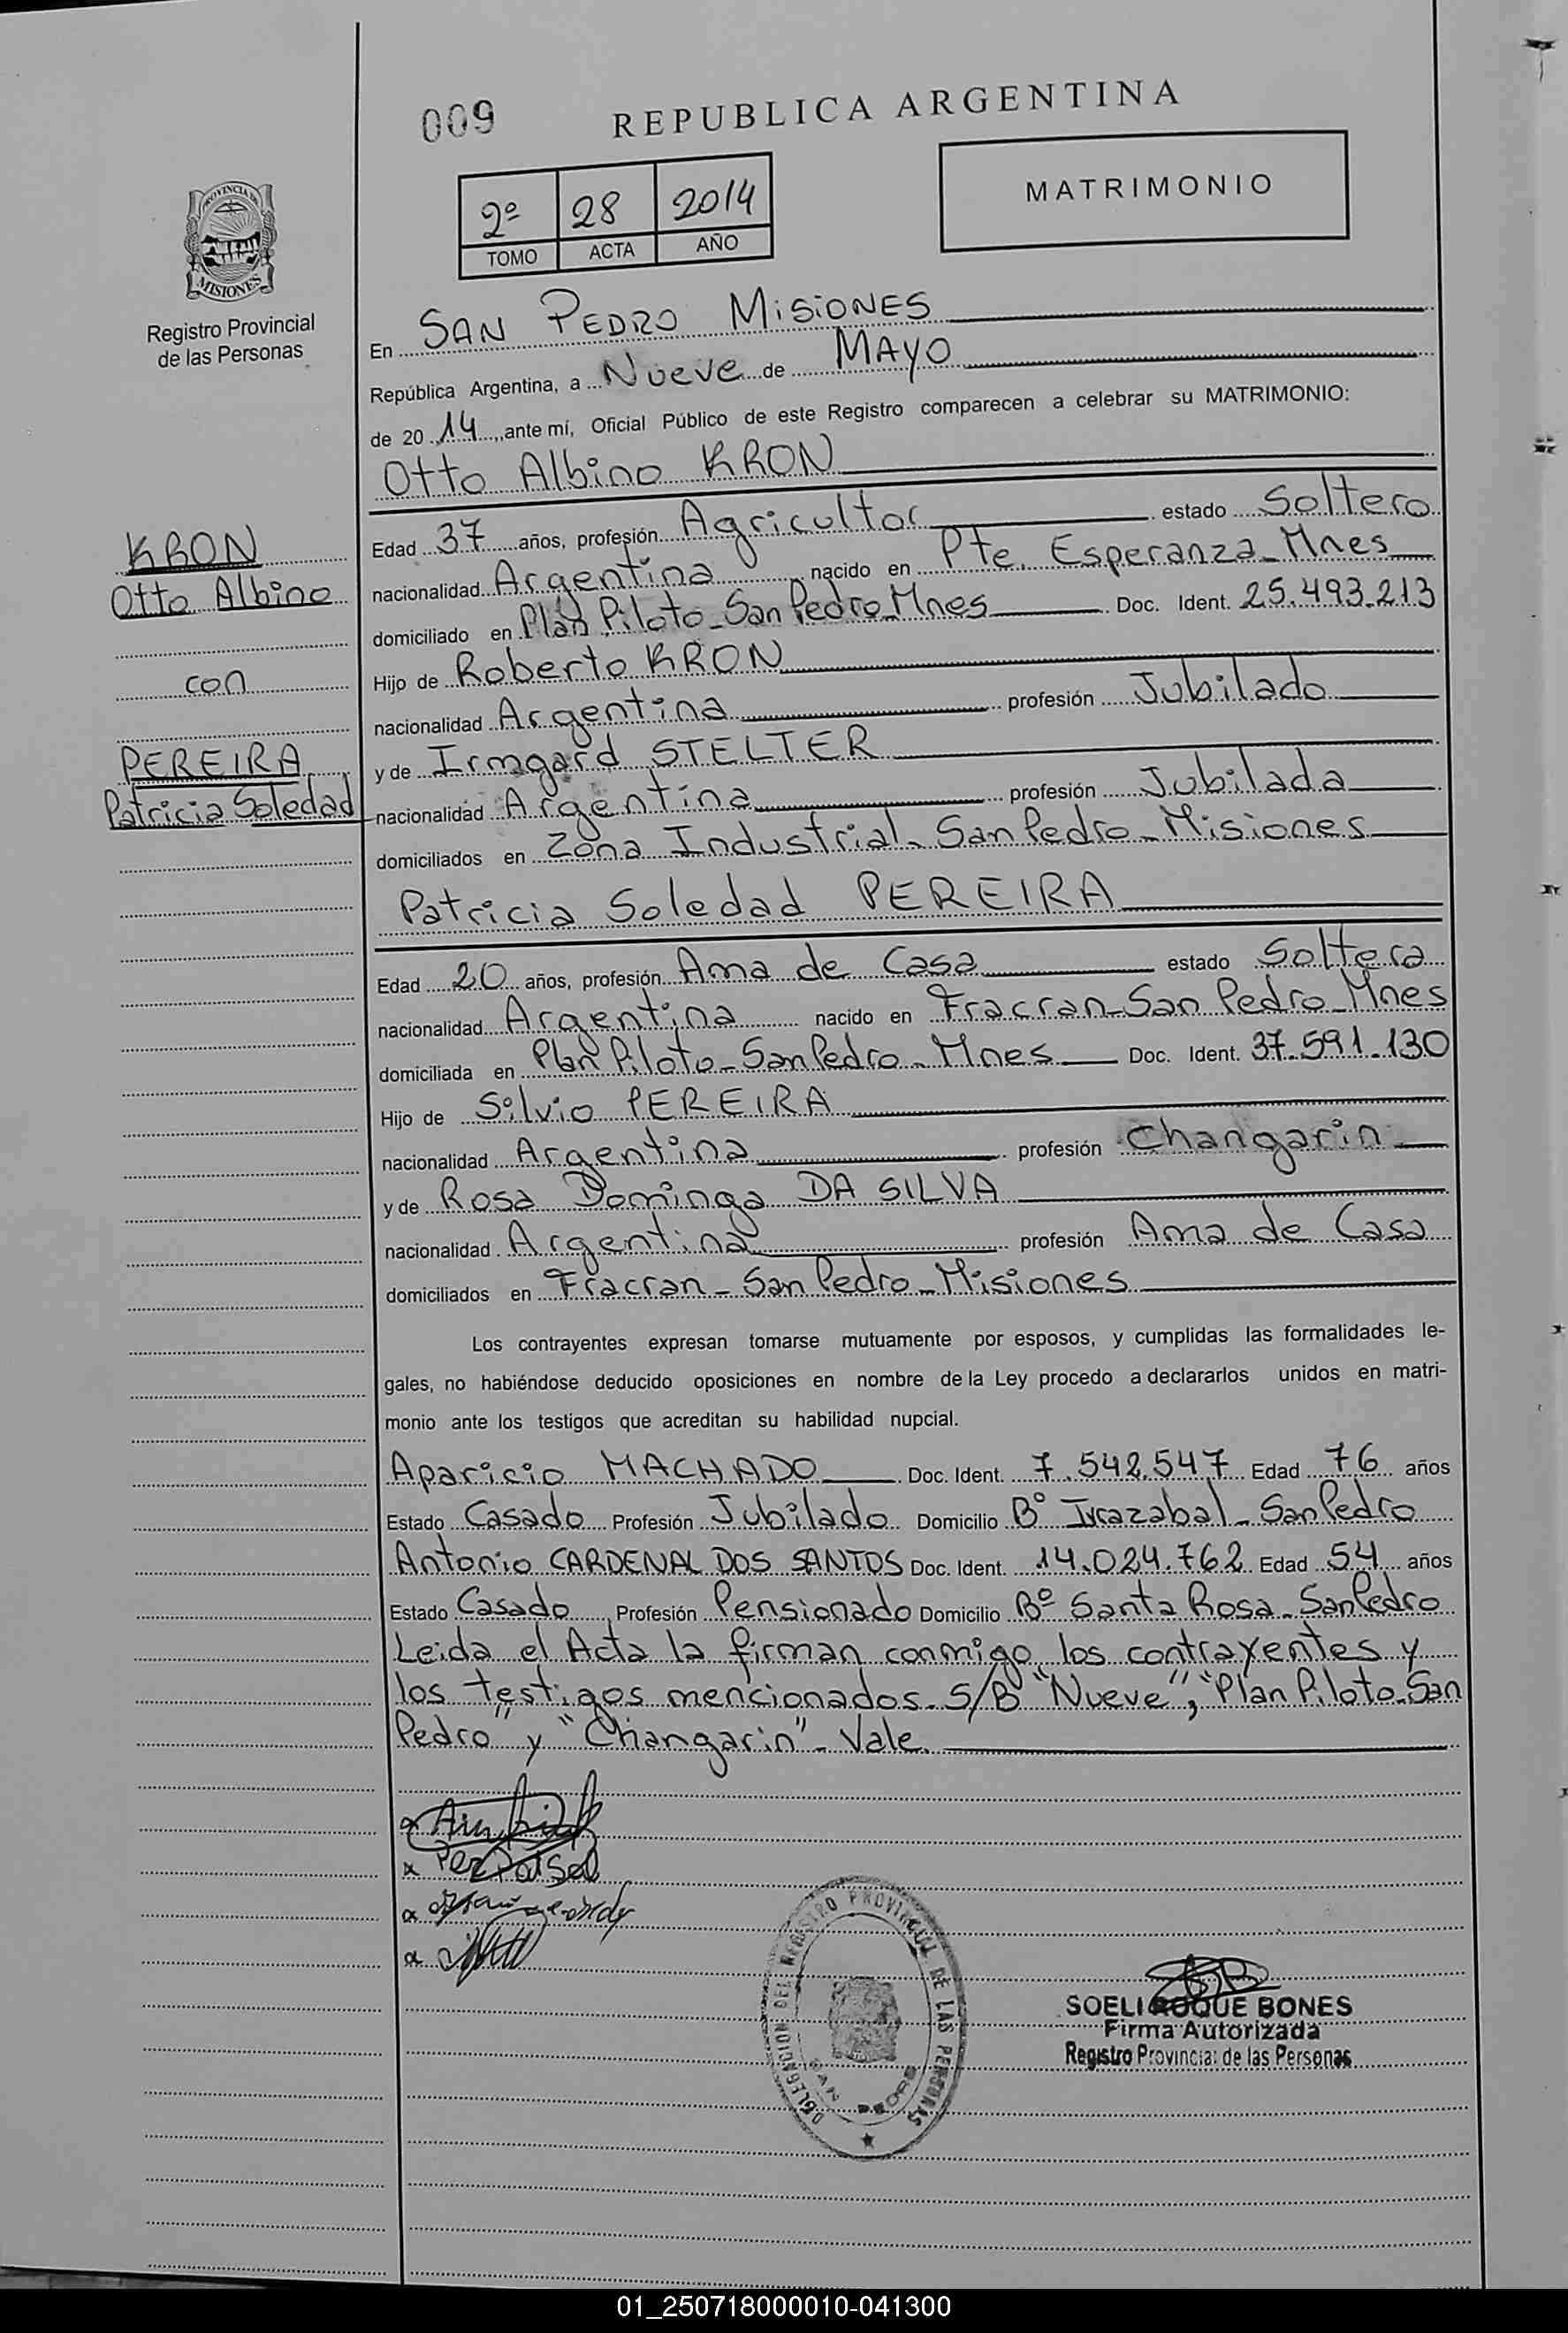 009
REPUBLICA ARGENTINA
2º 28 2014
TOMO ACTA AÑO
MATRIMONIO
PROVINCIA DE
MISIONES
Registro Provincial
de las Personas
En SAN PEDRO MISIONES
República Argentina, a Nueve de MAYO
de 2014, ante mí, Oficial Público de este Registro comparecen a celebrar su MATRIMONIO:
Otto Albino KRON
KRON
Otto Albino
con
PEREIRA
Patricia Soledad
Edad 37 años, profesión Agricultor estado Soltero
nacionalidad Argentina nacido en Pte. Esperanza-Mnes
domiciliado en Plan Piloto-San Pedro-Mnes Doc. Ident. 25.493.213
Hijo de Roberto KRON
nacionalidad Argentina profesión Jubilado
y de Irmgard STELTER
nacionalidad Argentina profesión Jubilada
domiciliados en Zona Industrial-San Pedro-Misiones
Patricia Soledad PEREIRA
Edad 20 años, profesión Ama de Casa estado Soltera
nacionalidad Argentina nacido en Fracran-San Pedro-Mnes
domiciliada en Plan Piloto-San Pedro-Mnes Doc. Ident. 37.591.130
Hijo de Silvio PEREIRA
nacionalidad Argentina profesión Changarin
y de Rosa Dominga DA SILVA
nacionalidad Argentina profesión Ama de Casa
domiciliados en Fracran-San Pedro-Misiones
Los contrayentes expresan tomarse mutuamente por esposos, y cumplidas las formalidades le-
gales, no habiéndose deducido oposiciones en nombre de la Ley procedo a declararlos unidos en matri-
monio ante los testigos que acreditan su habilidad nupcial.
Aparicio MACHADO Doc. Ident. 7.542.547 Edad 76 años
Estado Casado Profesión Jubilado Domicilio Bº Irrazabal-San Pedro
Antonio CARDENAL DOS SANTOS Doc. Ident. 14.024.762 Edad 54 años
Estado Casado Profesión Pensionado Domicilio Bº Santa Rosa-San Pedro
Leida el Acta la firman conmigo los contrayentes y
los testigos mencionados-S/B "Nueve", "Plan Piloto-San
Pedro" y "Changarin"-Vale.
DELEGACION DEL REGISTRO PROVINCIAL DE LAS PERSONAS
SAN PEDRO
SOELI ROQUE BONES
Firma Autorizada
Registro Provincial de las Personas
01_250718000010-041300